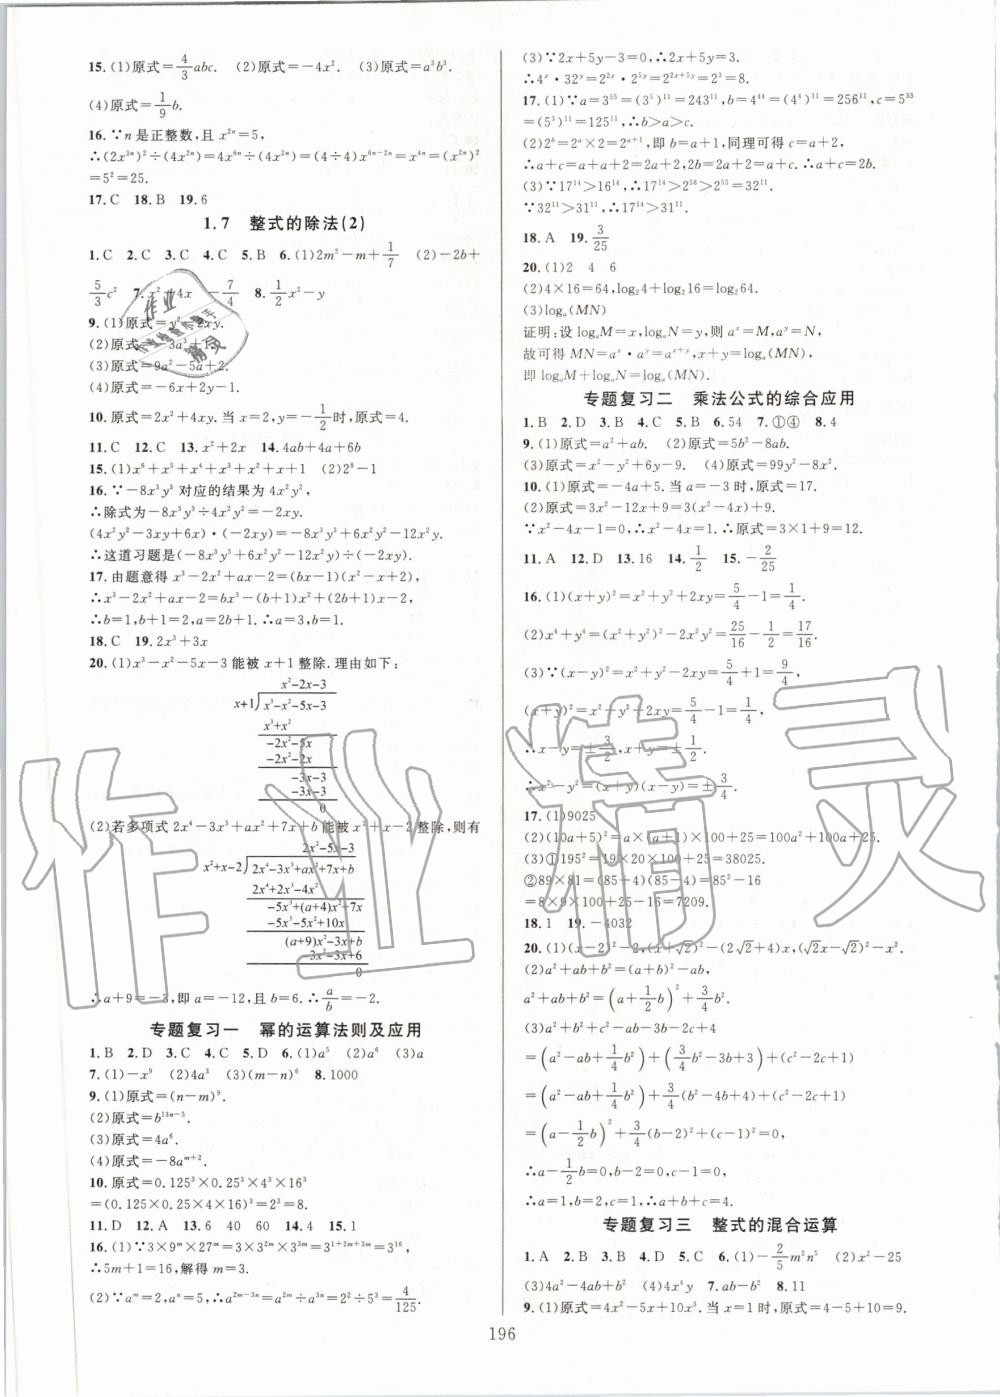 15.(1)原式=4/3abc. (2)原式=-4x². (3)原式=a³b³.
(4)原式=1/9b.
16.∵n是正整数,且x²ⁿ=5,
∴(2x³ⁿ)²÷(4x²ⁿ)=4x⁶ⁿ÷(4x²ⁿ)=(4÷4)x⁶ⁿ⁻²ⁿ=x⁴ⁿ=(x²ⁿ)²
=5²=25.
17.C 18.B 19.6
1.7 整式的除法(2)
1.C 2.C 3.C 4.C 5.B 6.(1)2m²-m+1/7 (2)-2b+
5/3c² 7.x²+4x -7/4 8.1/2x²-y
9.(1)原式=y²-2xy.
(2)原式=-3a³+1.
(3)原式=9a²-5a+2.
(4)原式=-6x+2y-1.
10.原式=2x²+4xy.当x=2,y=-1/2时,原式=4.
11.C 12.C 13.x²+2x 14.4ab+4a+6b
15.(1)x⁶+x⁵+x⁴+x³+x²+x+1 (2)2⁹-1
16.∵-8x³y³对应的结果为4x²y²,
∴除式为-8x³y³÷4x²y²=-2xy.
(4x²y²-3xy+6x)·(-2xy)=-8x³y³+6x²y²-12x²y,
∴这道习题是(-8x³y³+6x²y²-12x²y)÷(-2xy).
17.由题意得x³-2x²+ax-2=(bx-1)(x²-x+2),
∴x³-2x²+ax-2=bx³-(b+1)x²+(2b+1)x-2,
∴b=1,b+1=2,a=2b+1.∴a=3,b=1.
18.C 19.2x³+3x
20.(1)x³-x²-5x-3能被x+1整除.理由如下:
x²-2x-3
x+1)x³-x²-5x-3
x³+x²
-2x²-5x
-2x²-2x
-3x-3
-3x-3
0
(2)若多项式2x⁴-3x³+ax²+7x+b能被x²+x-2整除,则有
2x²-5x-3
x²+x-2)2x⁴-3x³+ax²+7x+b
2x⁴+2x³-4x²
-5x³+(a+4)x²+7x
-5x³-5x²+10x
(a+9)x²-3x+b
-3x²-3x+6
0
∴a+9=-3,即a=-12,且b=6.∴a/b=-2.
专题复习一 幂的运算法则及应用
1.B 2.D 3.C 4.C 5.D 6.(1)a⁵ (2)a⁶ (3)a
7.(1)-x⁹ (2)4a³ (3)(m-n)⁶ 8.1000
9.(1)原式=(n-m)⁹.
(2)原式=b¹³ⁿ⁻⁵.
(3)原式=4a⁶.
(4)原式=-8aᵐ⁺².
10.原式=0.125³×0.25³×4³×16³
=(0.125×0.25×4×16)³=2³=8.
11.D 12.A 13.6 40 60 14.15 15.1
16.(1)∵3×9ᵐ×27ᵐ=3×3²ᵐ×3³ᵐ=3¹⁺²ᵐ⁺³ᵐ=3¹⁶,
∴5m+1=16,解得m=3.
(2)∵aᵐ=2,aⁿ=5,∴a²ᵐ⁻³ⁿ=a²ᵐ÷a³ⁿ=2²÷5³=4/125.
(3)∵2x+5y-3=0,∴2x+5y=3.
∴4ˣ·32ʸ=2²ˣ·2⁵ʸ=2²ˣ⁺⁵ʸ=2³=8.
17.(1)∵a=3⁵⁵=(3⁵)¹¹=243¹¹,b=4⁴⁴=(4⁴)¹¹=256¹¹,c=5³³
=(5³)¹¹=125¹¹,∴b>a>c.
(2)2ᵇ=2ᵃ×2=2ᵃ⁺¹,即b=a+1,同理可得c=a+2,
∴a+c=a+a+2=2a+2,2b=2(a+1)=2a+2,∴a+c=2b.
(3)∵17¹⁴>16¹⁴,∴17¹⁴>2⁵⁶>2⁵⁵=32¹¹.
∵32¹¹>31¹¹,∴17¹⁴>31¹¹.
18.A 19.3/25
20.(1)2 4 6
(2)4×16=64,log₂4+log₂16=log₂64.
(3)logₐ(MN)
证明:设logₐM=x,logₐN=y,则aˣ=M,aʸ=N,
故可得MN=aˣ·aʸ=aˣ⁺ʸ,x+y=logₐ(MN),
即logₐM+logₐN=logₐ(MN).
专题复习二 乘法公式的综合应用
1.B 2.D 3.B 4.C 5.B 6.54 7.①④ 8.4
9.(1)原式=a²+ab. (2)原式=5b²-8ab.
(3)原式=x²-y²+6y-9. (4)原式=99y²-8x².
10.(1)原式=-4a+5.当a=-3时,原式=17.
(2)原式=3x²-12x+9=3(x²-4x)+9.
∵x²-4x-1=0,∴x²-4x=1.∴原式=3×1+9=12.
11.A 12.D 13.16 14.1/2 15.-2/25
16.(1)(x+y)²=x²+y²+2xy=5/4-1=1/4.
(2)x⁴+y⁴=(x²+y²)²-2x²y²=25/16-1/2=17/16.
(3)∵(x-y)²=x²+y²-2xy=5/4+1=9/4,
(x+y)²=x²+y²+2xy=5/4-1=1/4,
∴x-y=±3/2,x+y=±1/2.
∴x²-y²=(x+y)(x-y)=±3/4.
17.(1)9025
(2)(10a+5)²=a×(a+1)×100+25=100a²+100a+25.
(3)①195²=19×20×100+25=38025.
②89×81=(85+4)(85-4)=85²-16
=8×9×100+25-16=7209.
18.1 19.-4032
20.(1)(x-2)²-2,(x+√2)²-(2√2+4)x,(√2x-√2)²-x².
(2)a²+ab+b²=(a+b)²-ab,
a²+ab+b²=(a+1/2b)²+3/4b².
(3)a²+b²+c²-ab-3b-2c+4
=(a²-ab+1/4b²)+(3/4b²-3b+3)+(c²-2c+1)
=(a²-ab+1/4b²)+3/4(b²-4b+4)+(c²-2c+1)
=(a-1/2b)²+3/4(b-2)²+(c-1)²=0,
∴a-1/2b=0,b-2=0,c-1=0,
∴a=1,b=2,c=1,∴a+b+c=4.
专题复习三 整式的混合运算
1.A 2.B 3.B 4.D 5.C 6.(1)-2/5m²n⁵ (2)x²-25
(3)4a²-4ab+b² (4)4x⁴y 7.ab-b² 8.11
9.(1)原式=4x²-5x+10x³.当x=1时,原式=4-5+10=9.
196
作业精灵